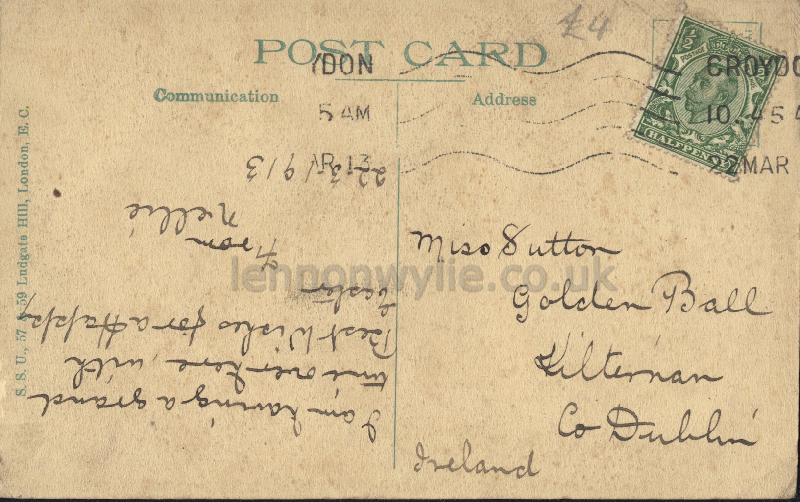 £4
POST CARD
Communication
Address
YDON
5 AM
AR 13
CROYDO
10.45
22 MAR
½
HALFPENNY
S. S. U., 57 & 59 Ludgate Hill, London, E. C.
I am having a grand
time over here, with
Best Wishes for a Happy
Easter
From
Nellie
22.3/1913
Miss Sutton
Golden Ball
Kilternan
Co Dublin
Ireland
lennonwylie.co.uk